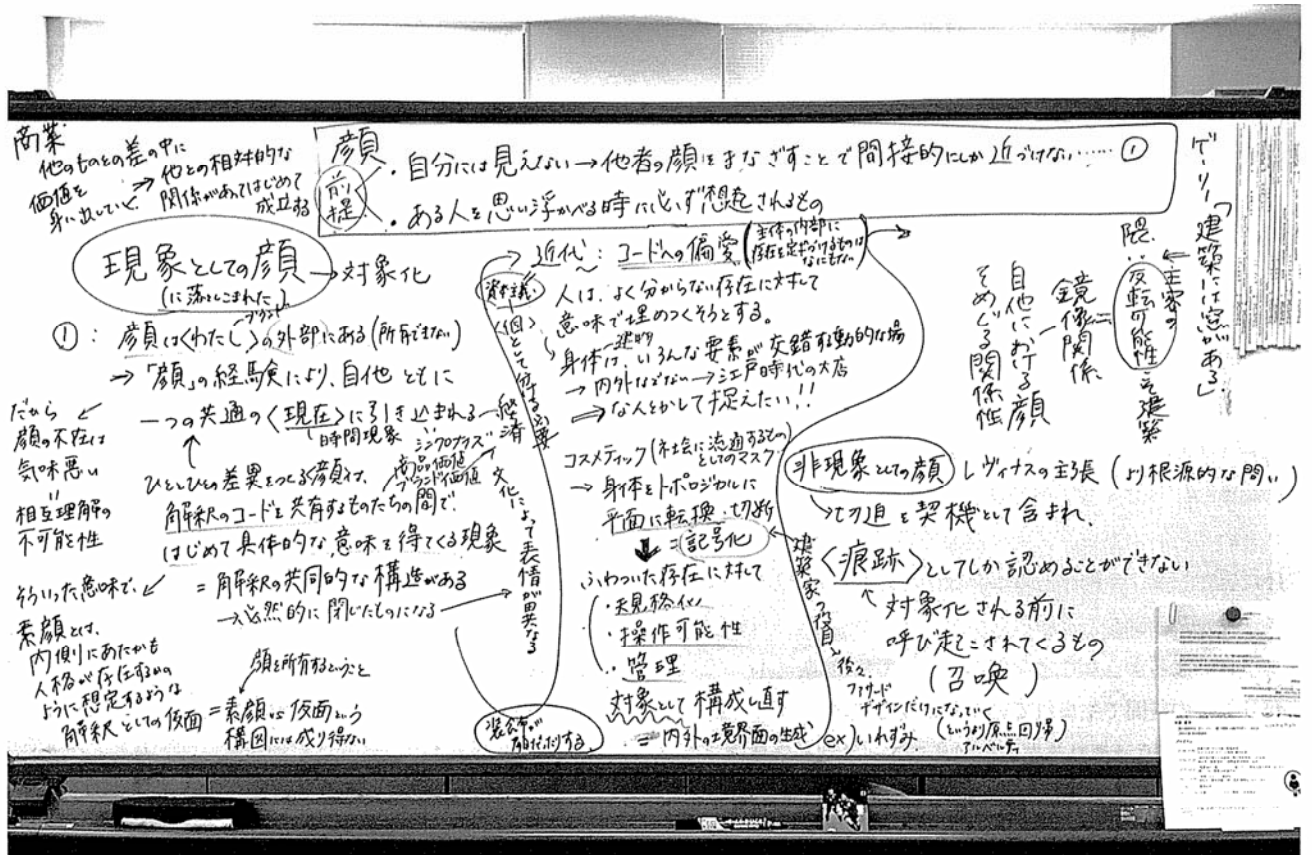 商業
他のものとの差の中に
価値を
見い出していく
→ 他との相対的な
関係があってはじめて
成立する
顔
前提
・自分には見えない→他者の顔をまなざすことで間接的にしか近づけない……①
・ある人を思い浮かべる時に必ず想起されるもの
現象としての顔 → 対象化
(に落としこまれた)
ブランド
①：顔は〈わたし〉の外部にある(所有できない)
→「顔」の経験により、自他ともに
一つの共通の〈現在〉に引き込まれる
時間現象
だから
顔の不在は
気味悪い
相互理解の
不可能性
ひとりひとりの差異をつくる顔は、
解釈のコードを共有するものたちの間で、
はじめて具体的な意味を得てくる現象
= 解釈の共同的な構造がある
→必然的に閉じたものになる
そういった意味で、
素顔とは、
内側にあたかも
人格が存在するかの
ように想定するような
解釈としての仮面
顔を所有するということ
= 素顔 vs 仮面という
構図には成り得ない
経済
商品価値
ブランド価値
文化によって表情が異なる
資本主義
〈個〉として分ける必要
→ 近代：コードへの偏愛
(主体の内部に
存在を定義づけるものは
なにもない)
人は、よく分からない存在に対して
意味で埋めつくそうとする。
身体はいろんな要素が交錯する動的な場
→ 内外などない → 江戸時代の大店
⇒ なんとかして捉えたい!!
コスメティック(社会に流通するもの)
としてのマスク
→ 身体をトポロジカルに
平面に転換・切断
= 記号化
ふわついた存在に対して
・規格化
・操作可能性
・管理
対象として構成し直す
= 内外の境界面の生成
ex) いれずみ
建築家の役目
後々、
ファサード
デザインだけになっていく
(というより原点回帰)
アルベルティ
非現象としての顔 レヴィナスの主張 (より根源的な問い)
→切迫を契機として含まれ、
〈痕跡〉としてしか認めることができない
対象化される前に
呼び起こされてくるもの
(召喚)
ゲーリー「建築には窓がある」
主客の
反転可能性
=
鏡像関係
自他における顔
をめぐる関係性